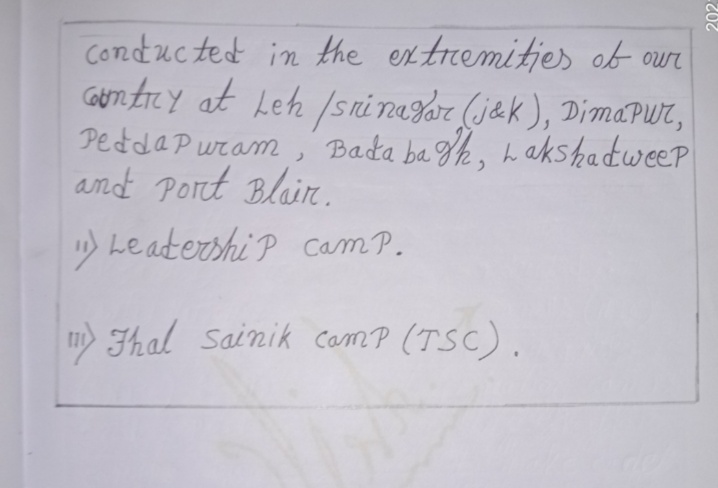 conducted in the extremities of our
country at Leh/srinagar (j&k), Dimapur,
Peddapuram, Badabagh, Lakshadweep
and Port Blair.
ii) Leadership camp.
iii) Thal Sainik camp (TSC).
202